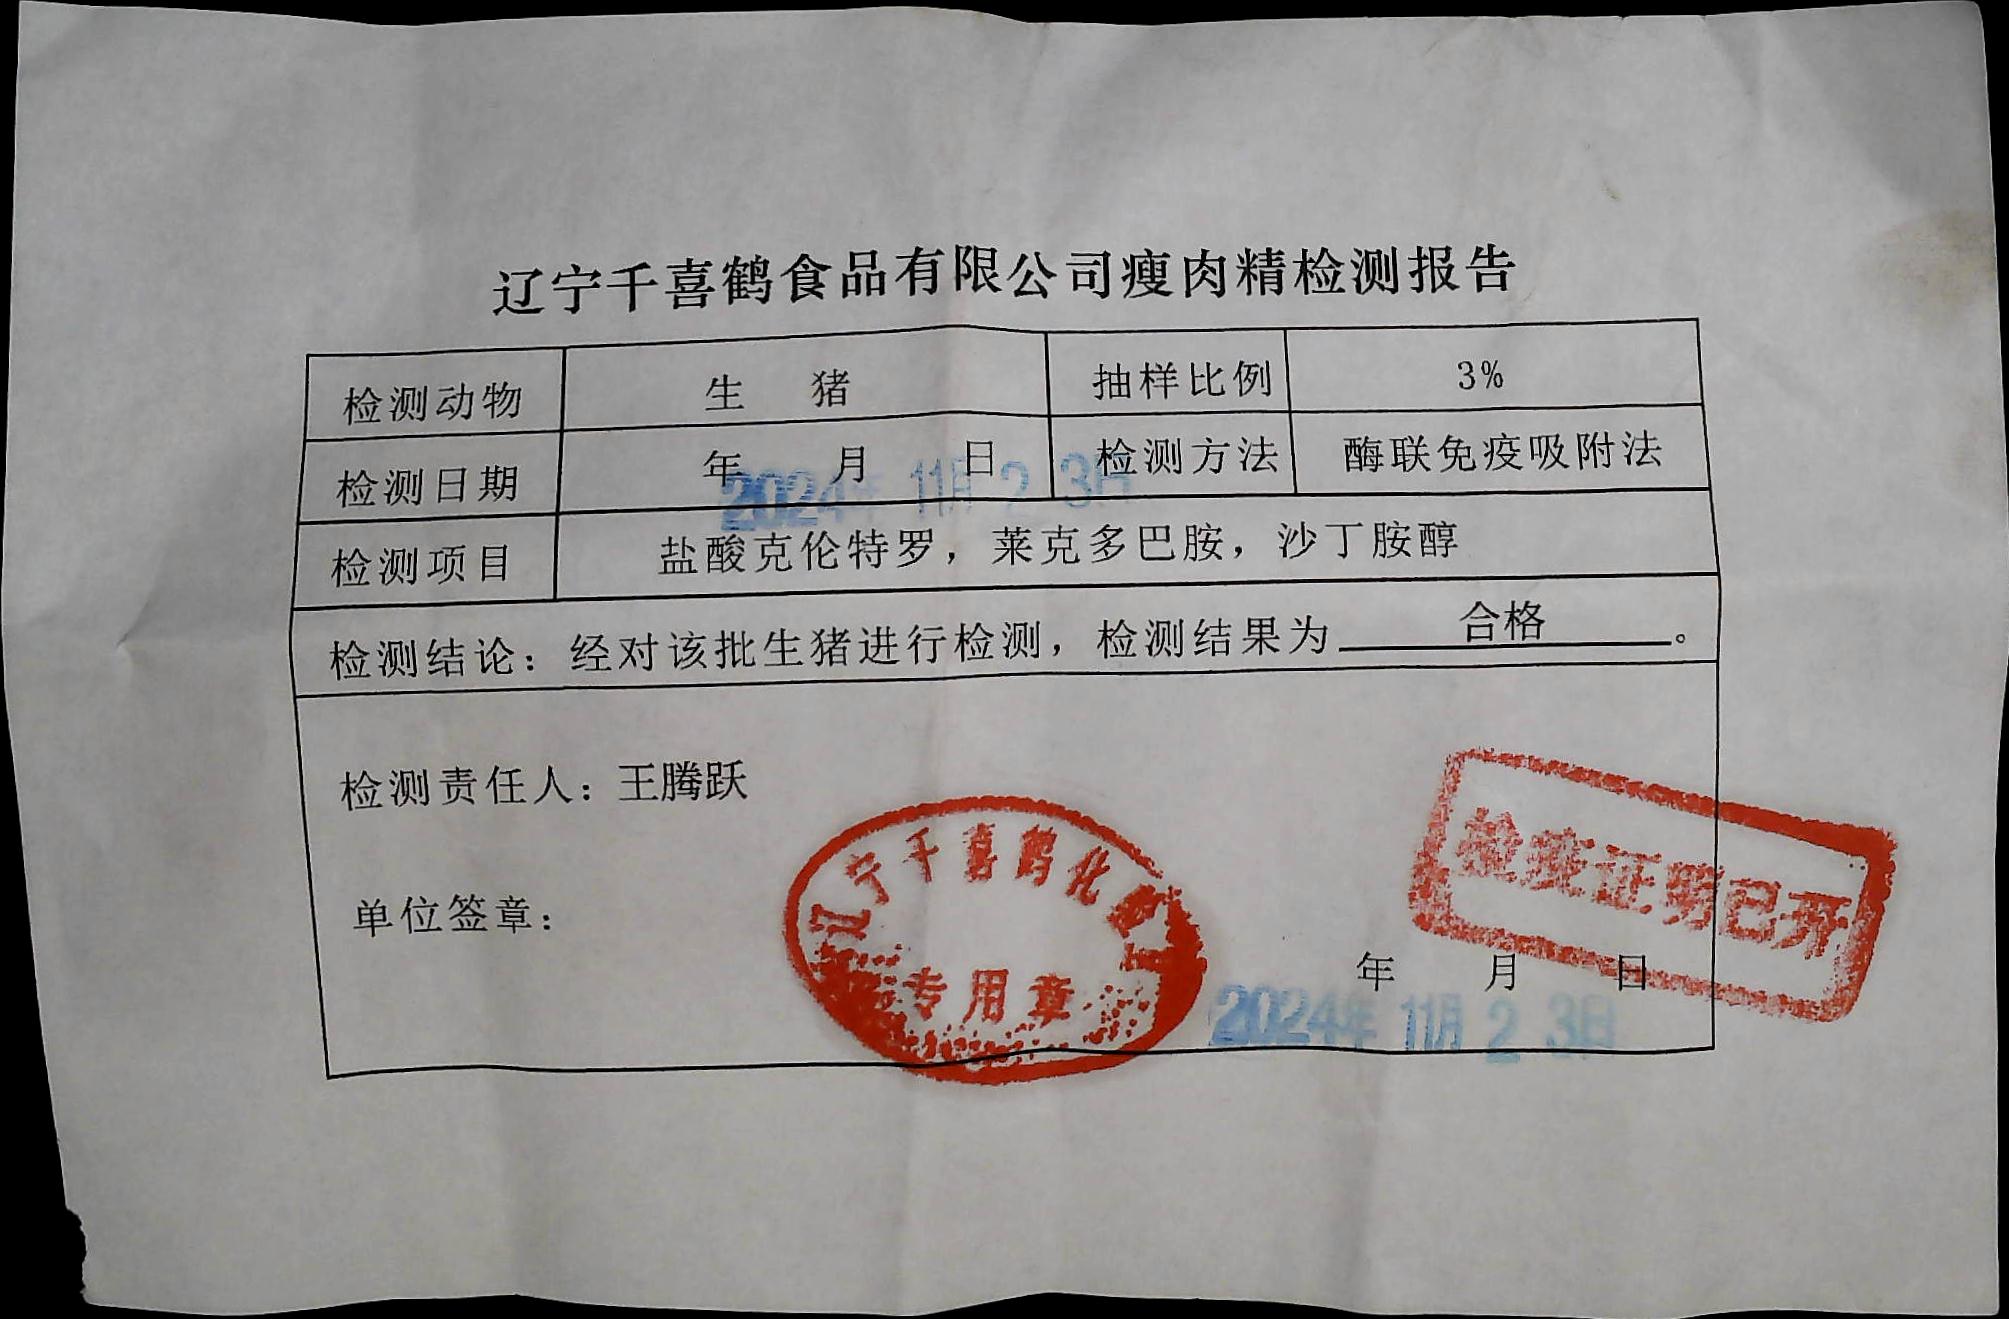 辽宁千喜鹤食品有限公司瘦肉精检测报告
检测动物 生 猪 抽样比例 3%
检测日期 年 月 日 检测方法 酶联免疫吸附法
2024年 11月 2 3日
检测项目 盐酸克伦特罗，莱克多巴胺，沙丁胺醇
检测结论：经对该批生猪进行检测，检测结果为 合格 。
检测责任人：王腾跃
单位签章：
辽宁千喜鹤化
专用章
检疫证明已开
年 月 日
2024年 11月 2 3日